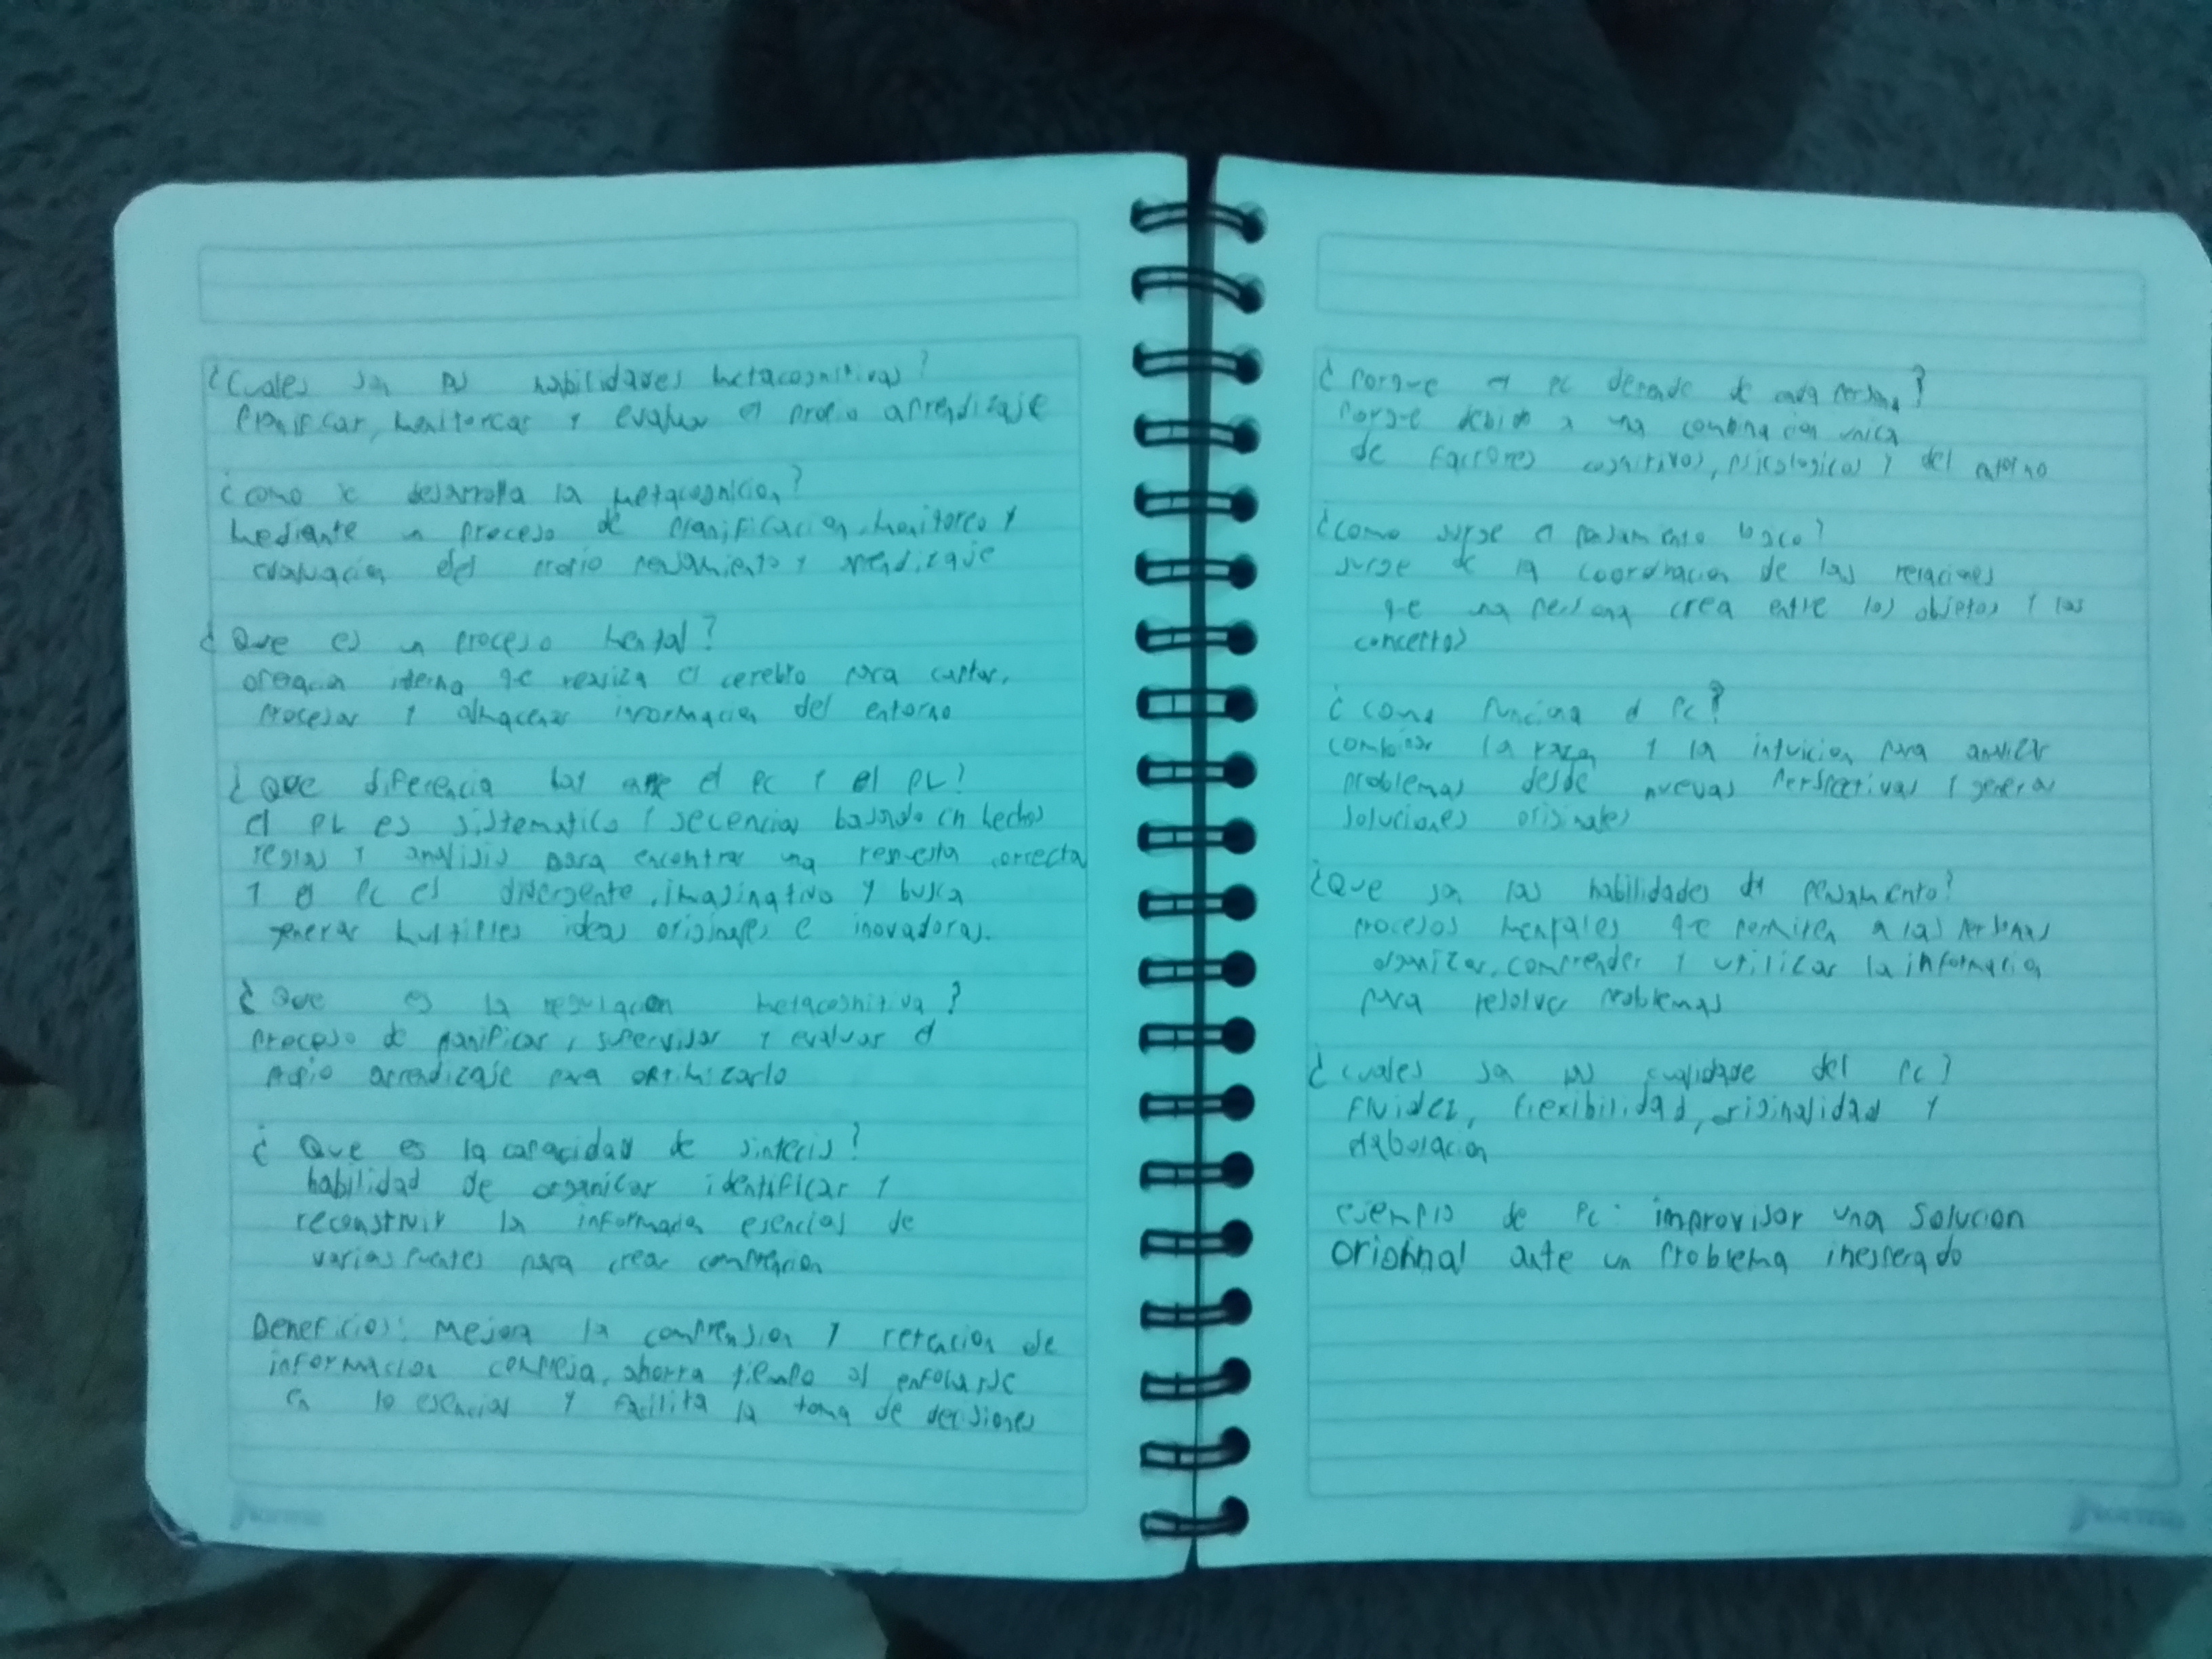 ¿Cuales son las habilidades metacognitivas?
Planificar, monitorear y evaluar el propio aprendizaje
¿como se desarrolla la metacognicion?
Mediante un proceso de planificacion, monitoreo y
evaluacion del propio pensamiento y aprendizaje
¿Que es un proceso mental?
operacion interna que realiza el cerebro para captar,
procesar y almacenar informacion del entorno
¿Que diferencia hay entre el PC y el PL?
el PL es sistematico y secencial basado en hechos
reglas y analisis para encontrar una respuesta correcta
y el PC es divergente, imaginativo y busca
generar multiples ideas originales e inovadoras.
¿Que es la regulacion metacognitiva?
proceso de planificar, supervisar y evaluar el
propio aprendizaje para optimizarlo
¿Que es la capacidad de sintecis?
habilidad de organizar identificar y
reconstruir la informacion esencial de
varias fuentes para crear
Beneficios: Mejora la comprension y retencion de
informacion compleja, ahorra tiempo al enfocarse
en lo esencial y facilita la toma de decisiones
¿Porque el PC depende de cada persona?
Porque debido a una combinacion unica
de factores cognitivos, psicologicos y del entorno
¿como surge el pensamiento logico?
surge de la coordinacion de las relaciones
que una persona crea entre los objetos y los
conceptos
¿como funciona el PC?
combinar la razon y la intuicion para analizar
problemas desde nuevas Perspectivas y generar
soluciones originales
¿Que son las habilidades de pensamiento?
procesos mentales que permiten a las personas
organizar, comprender y utilizar la informacion
para resolver problemas
¿cuales son las cualidade del PC?
Fluidez, flexibilidad, originalidad y
elaboracion
ejemplo de PC: improvisar una solucion
original ante un problema inesperado